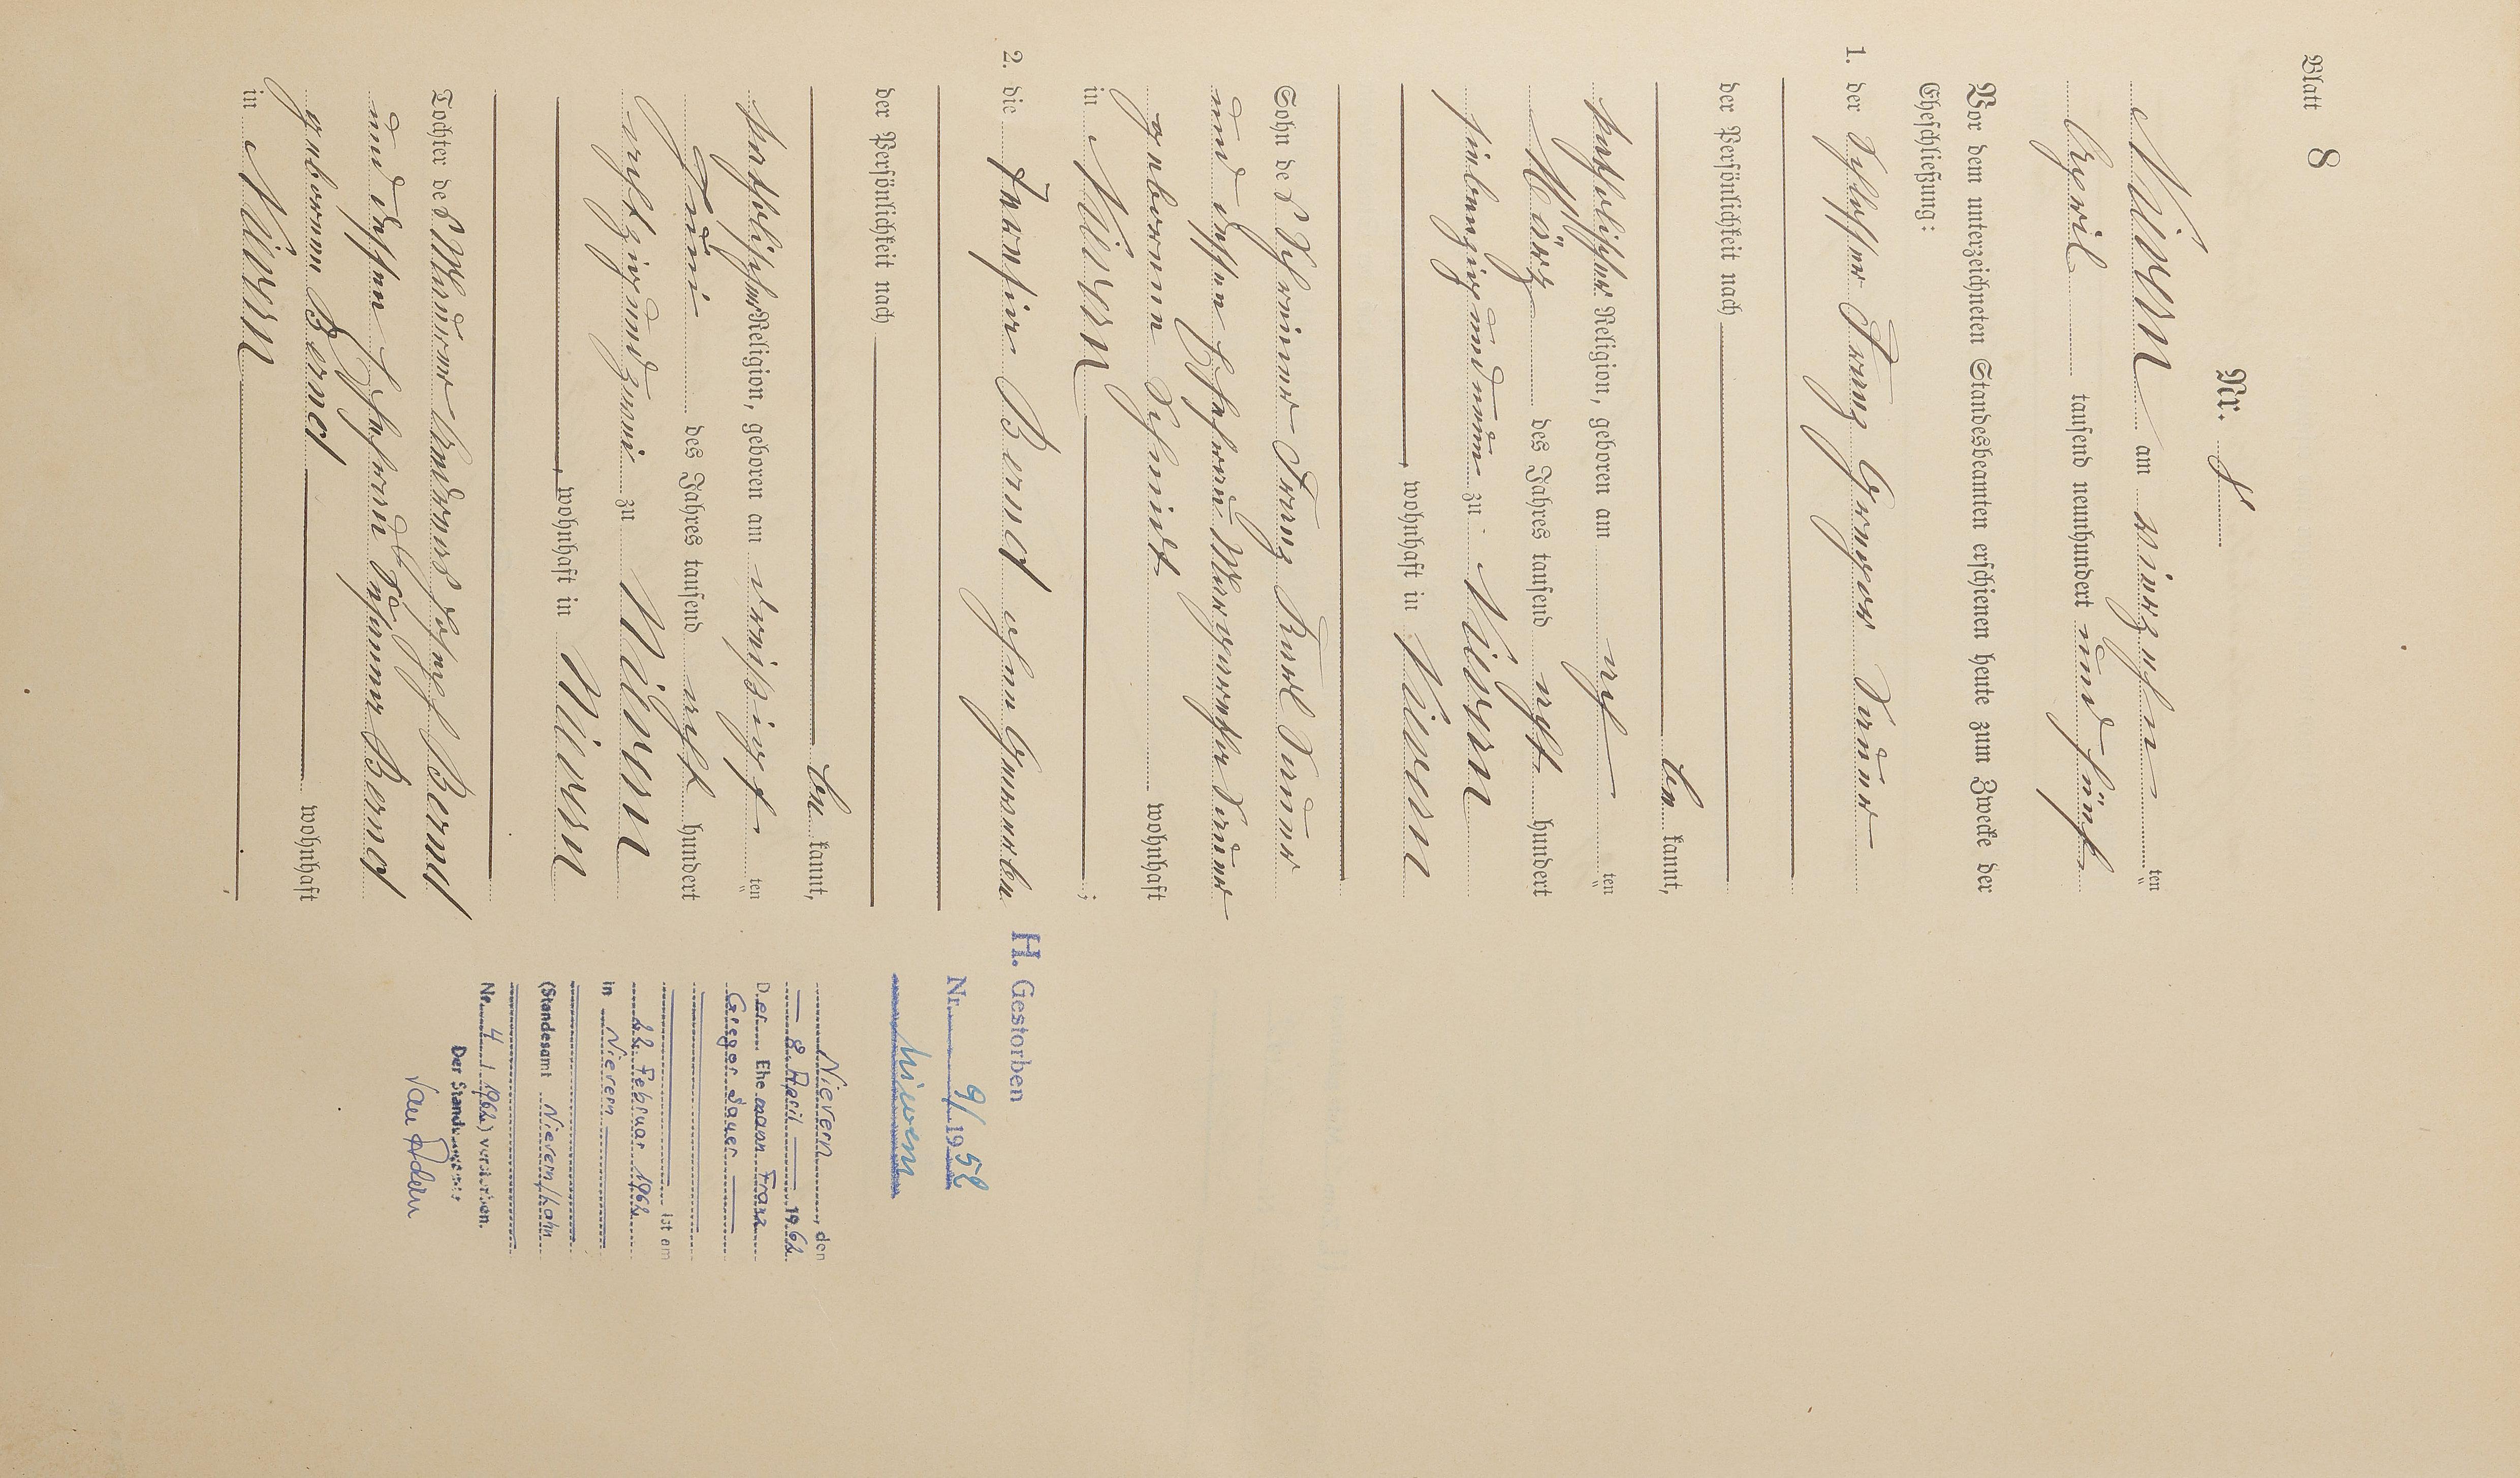 Blatt 8
Nr. 8
Nievern am vierzehn ten
April tausend neunhundert und fünf
Vor dem unterzeichneten Standesbeamten erschienen heute zum Zwecke der
Eheschließung:
1. der Schlosser Franz Gregor Sauer
der Persönlichkeit nach
be kannt,
katholischer Religion, geboren am ten
März des Jahres tausend acht hundert
siebenzig und neun zu Nievern
, wohnhaft in Nievern
Sohn des Schreiner Franz Karl Sauer
und dessen Ehefrau Margaretha Sauer
geborenen Schmidt wohnhaft
in Nievern ;
2. die Bernd ohne Gewerbe
der Persönlichkeit nach
be kannt,
katholischer Religion, geboren am dreißigst ten
Juni des Jahres tausend acht hundert
achtzig und zwei zu Nievern
, wohnhaft in Nievern
Tochter des Maurer Andreas Josef Bernd
und dessen Ehefrau Johanna Bernd
geborenen Bernd wohnhaft
in Nievern ,
H. Gestorben
Nr. 9/1952
Nievern
Nievern, den
8. April 1962
Der Ehemann Franz
Gregor Sauer
ist am
22. Februar 1962
in Nievern
(Standesamt Nievern/Lahn
Nr. 4/1962) verstorben.
Der Standesbeamte